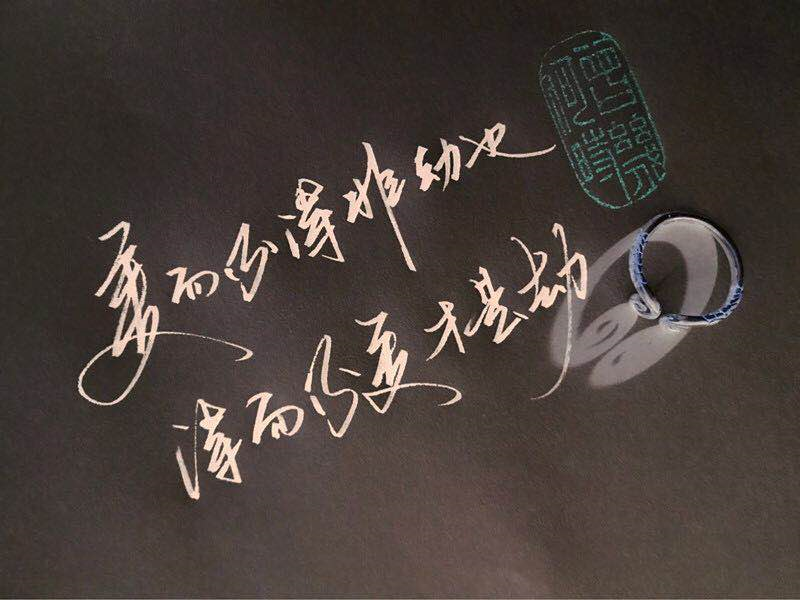 爱而不得非劫也
得而不爱才是劫